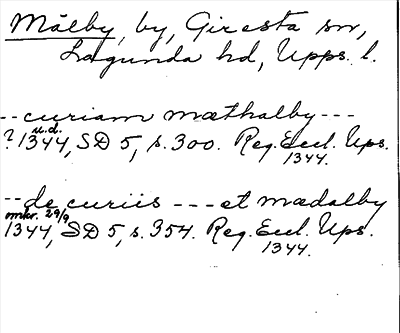 Målby, by, Giresta sn,
Lagunda hd, Upps. l.
-- curiam mæthalby ---
? u.d. 1344, SD 5, s. 300. Reg. Eccl. Ups.
1344.
-- de curiis --- et mædalby
omkr. 29/9
1344, SD 5, s. 354. Reg. Eccl. Ups.
1344.